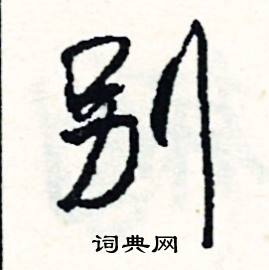 别
词典网